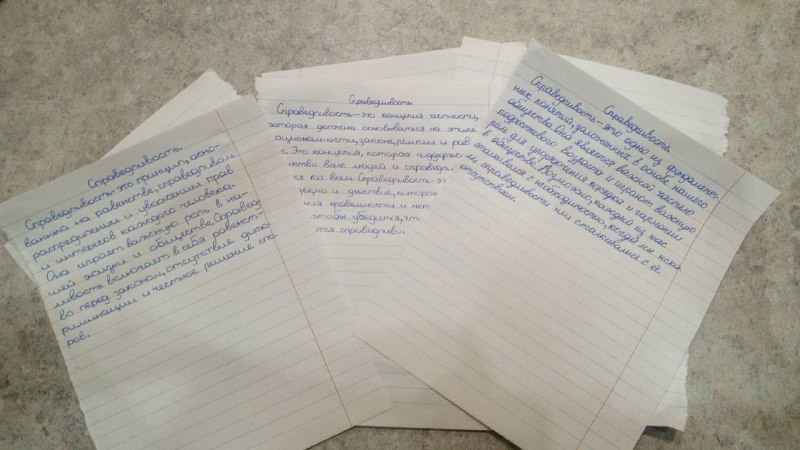 Справедливость
Справедливость-это принцип, осно-
ванный на равенстве, справедливом
распределении и уважении прав
и интересов каждого человека.
Она играет важную роль в на-
шей жизни и обществе. Справед
ливость включает в себя равенст-
во перед законом, отсутствие диск-
риминации и честное решение спо-
ров.
Справедливость
Справедливость-это концепция честности,
которая должна основываться на этике
рав
Это концепция, которая поддержи
нство всех людей и справедли
ко всем. Справедливость-эт
и действие, которое
ния правильности и
чтобы убедится, что
тся справедливо.
Справедливость
Справедливость-это одно из фундамент
ных понятий, заложенных в основе нашего
общества. Она является важной частью
возраста и играет важную
роль для удержания порядка и гармонии
в обществе. Возможно, каждый из нас
сталкивался с необходимостью, когда мы иска
ли справедливость или сталкивались с её
отсутствием.